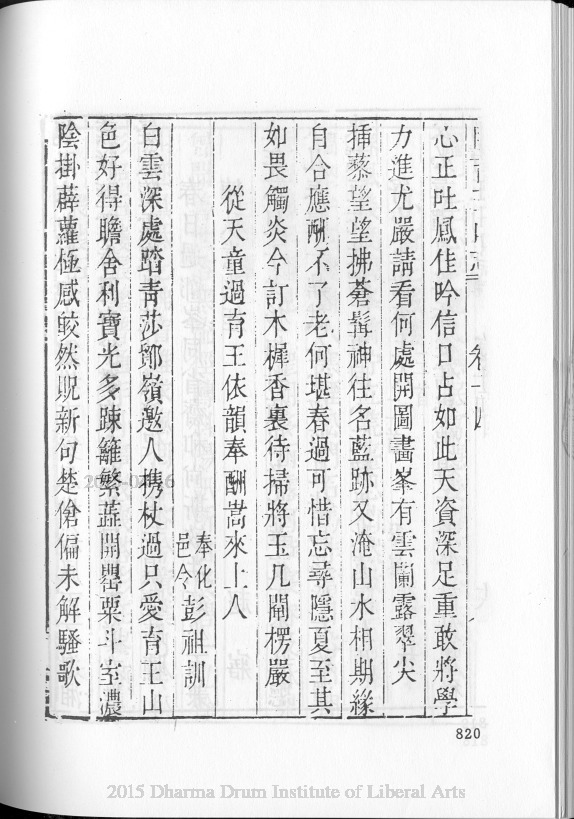 心正吐鳳佳吟信口占如此天資深足重敢將學
力進尤嚴請看何處開圖畫峯有雲闌露翠尖
挿藜望望拂蒼髯神往名藍跡又淹山水相期緣
自合應酬不了老何堪春過可惜忘尋隱夏至其
如畏觸炎今訂木樨香裏待掃將玉几閘楞嚴
從天童過育王依韻奉酬嵩來上人
奉化邑令彭祖訓
白雲深處踏青莎鄮嶺邀人携杖過只愛育王山
色好得瞻舍利寶光多踈籬繁蕋開罌粟斗室濃
陰掛薜蘿極感皎然貺新句楚傖偏未解騷歌
820
2015 Dharma Drum Institute of Liberal Arts